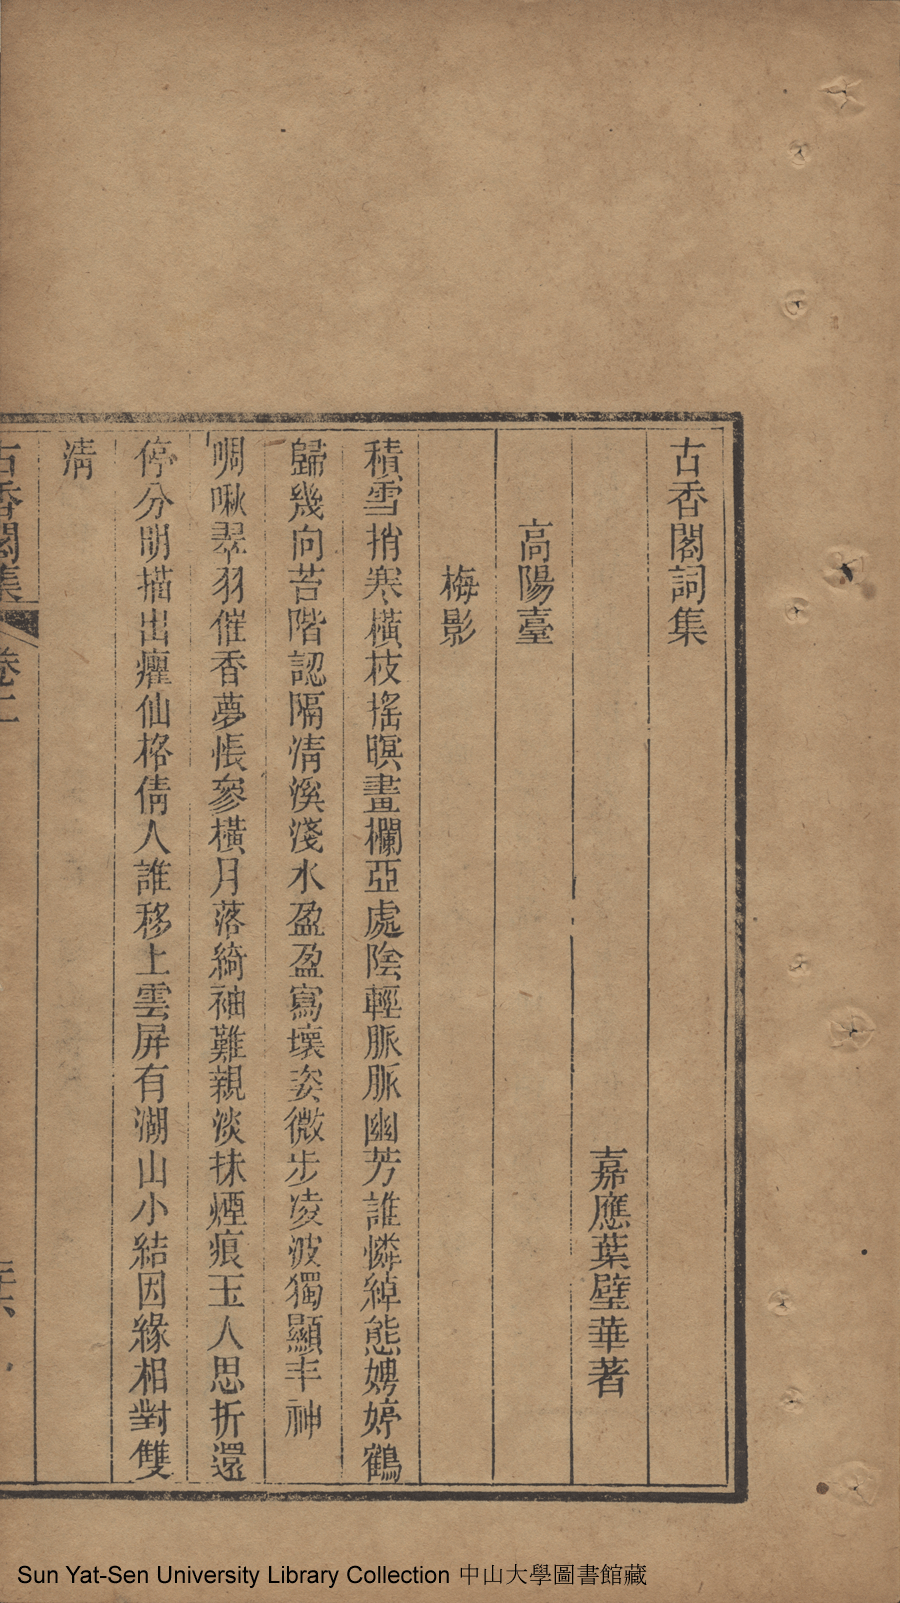 古香閣詞集
嘉應葉璧華著
高陽臺
梅影
積雪捎寒橫枝搖暝畫欄亞處陰輕脈脈幽芳誰憐綽態娉婷鶴
歸幾向苔階認隔清溪淺水盈盈寫壞姿微步凌波獨顯丰神
啁啾翠羽催香夢悵參橫月落綺袖難親淡抹煙痕玉人思折還
停分明描出癯仙格倩人誰移上雲屏有湖山小結因緣相對雙
清
古香閣集
卷二
Sun Yat-Sen University Library Collection 中山大學圖書館藏